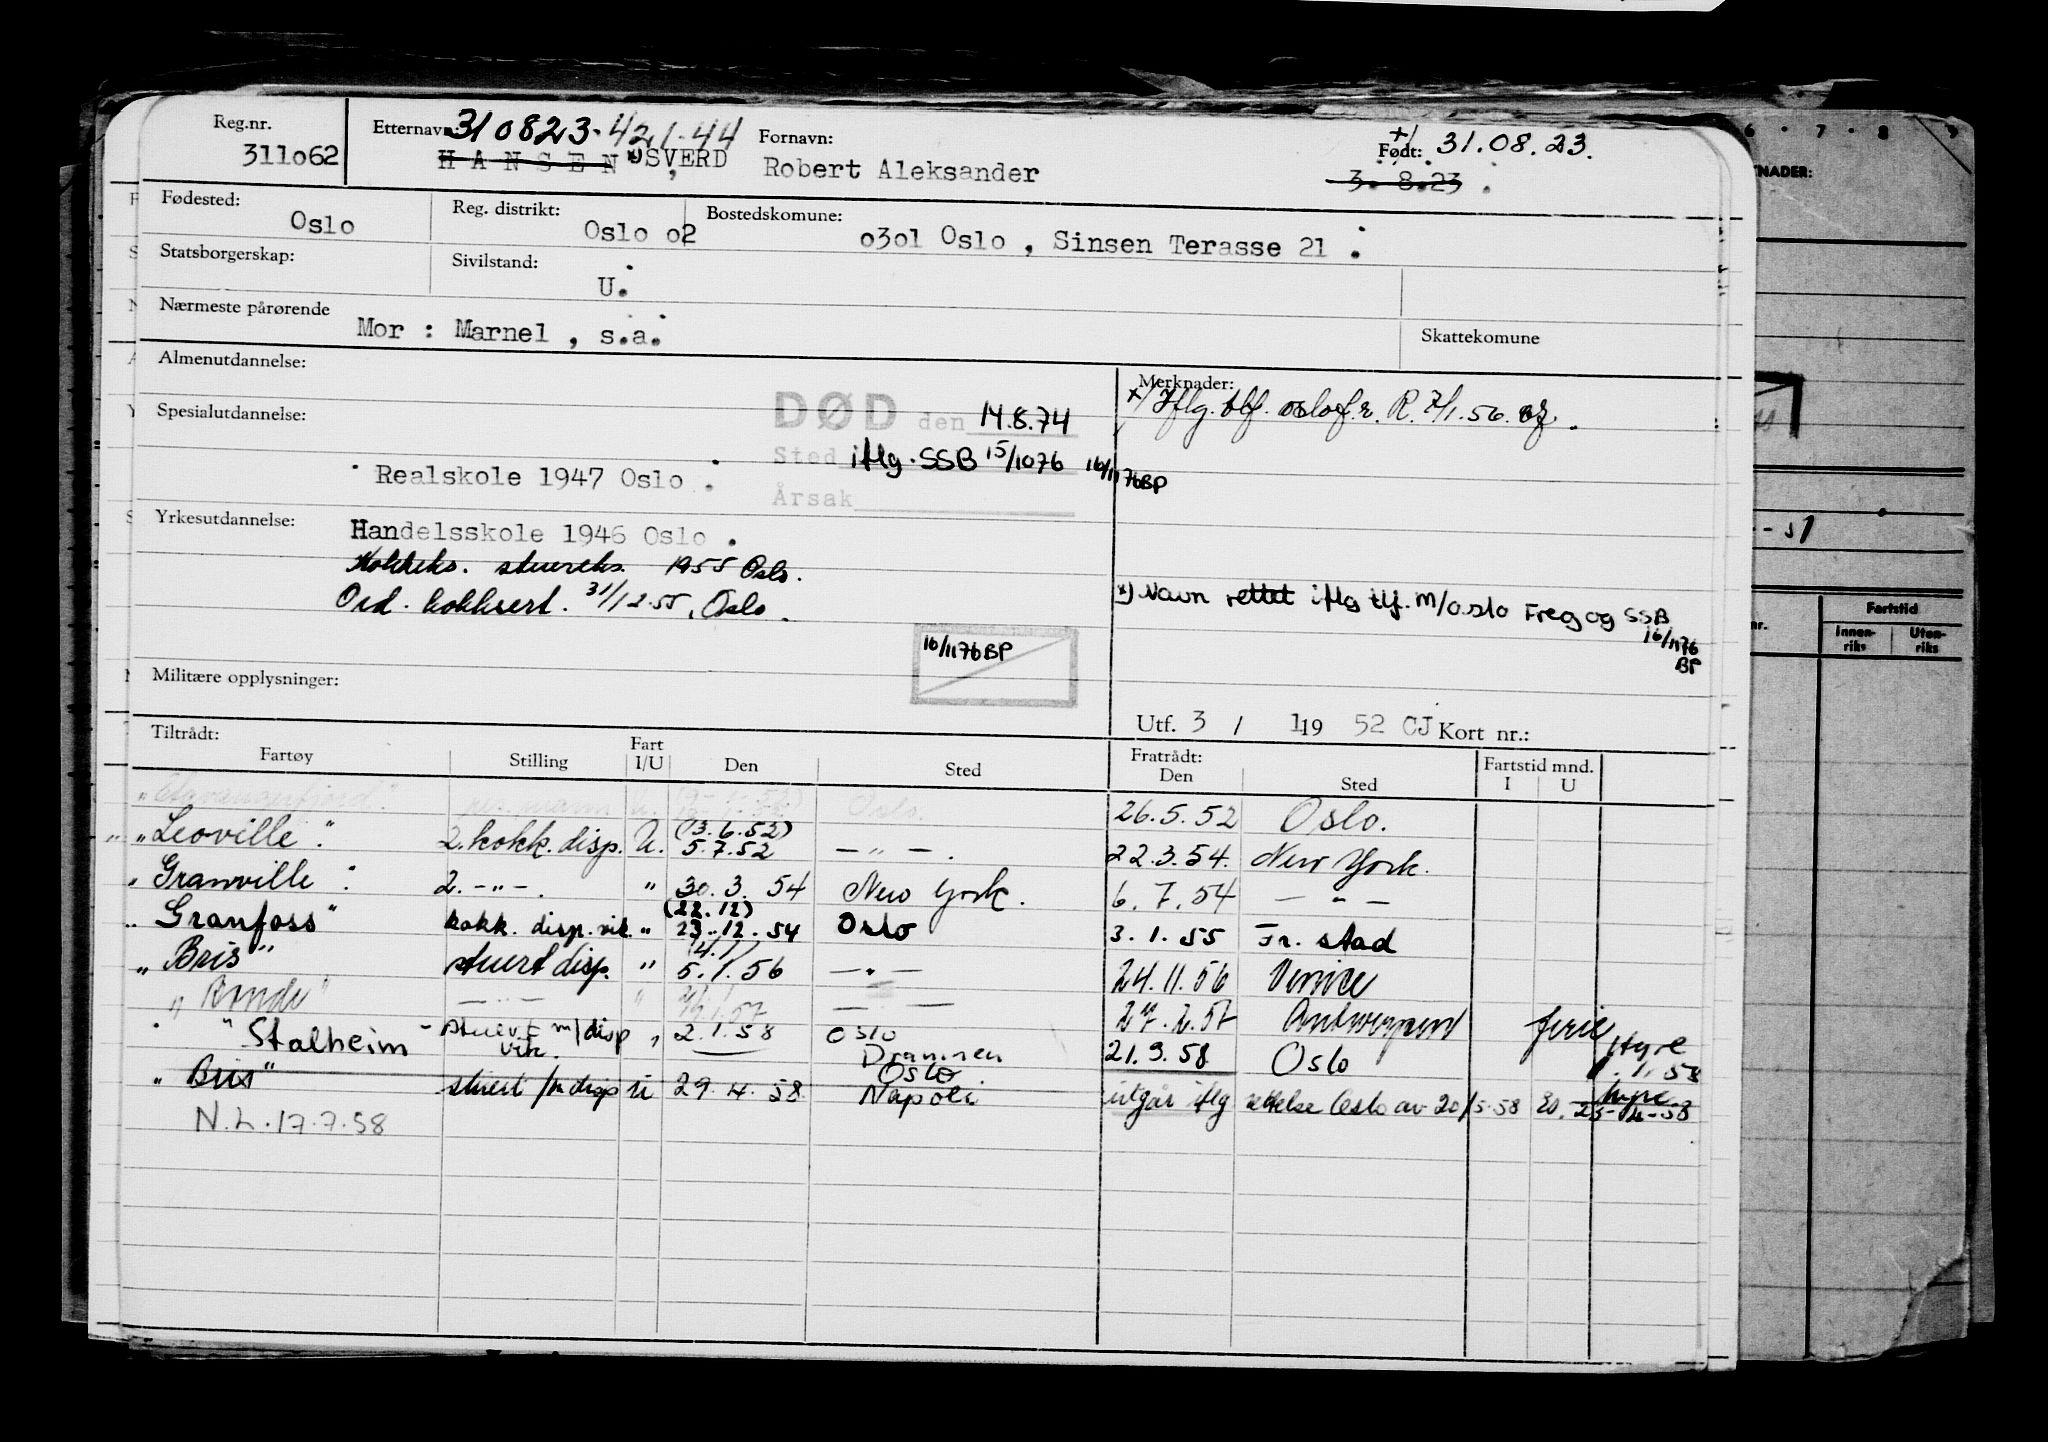 Reg.nr. 311o62
Etternavn: 310823-42144
H A N S E N x) SVERD ,
Fornavn: Robert Aleksander
+) Født: 31.08.23.
3. 8.23 .
Fødested: Oslo
Reg. distrikt: Oslo o2
Bostedskomune: o3o1 Oslo , Sinsen Terasse 21 .
Statsborgerskap:
Sivilstand: U.
Nærmeste pårørende Mor : Marnel , s.a.
Skattekomune
Almenutdannelse:
Merknader:
+) Iflg. tlf. R. 7/1.56.
DØD den 14.8.74
Spesialutdannelse:
Sted iflg. SSB 15/1076 16/1176BP
Realskole 1947 Oslo .
Årsak
Yrkesutdannelse: Handelsskole 1946 Oslo .
Kokkeks. stuerteks. 1955 Oslo.
Ord. kokksert. 31/12-55, Oslo.
x) Navn rettet iflg tlf. m/Oslo Freg og SSB
16/1176
BP
16/1176BP
Militære opplysninger:
Utf. 3 / 1 19 52 CJ Kort nr.:
Tiltrådt:
Fartøy Stilling Fart I/U Den Sted
Fratrådt: Den Sted Fartstid mnd. I U
"Stavangerfjord". Oslo. 26.5.52 Oslo.
"Leoville". 2. kokk. disp. U. (3.6.52) 5.7.52 - " - . 22.3.54. New York.
"Granville". 2. - " - . " 30.3.54 New York. 6.7.54 - " -
"Granfoss" kokk. disp. vik. " (22.12) 23-12-54 Oslo 3.1.55 Fr. stad
"Bris" stuert disp. " 5.1.56 - " - 24.11.56 Venice
"Ronde" - " - " - " - 27.2.57 Antwerpen ferie
"Stalheim" stuert m/disp vik. " 2.1.58 Oslo Drammen 21.3.58 Oslo Hyre
"Bris" stuert /m disp U 29.4.58 Oslo Napoli utgår iflg rettelse Oslo av 20/5-58 hyre 25-4-58
N.L. 17.7.58
NADER:
Fartstid
Innen-riks Uten-riks